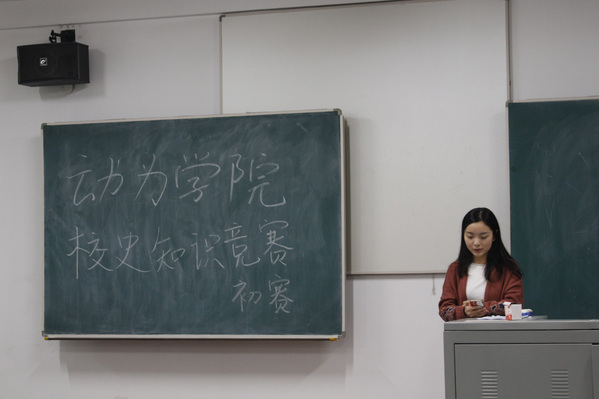 动为学院
校史知识竞赛
初赛